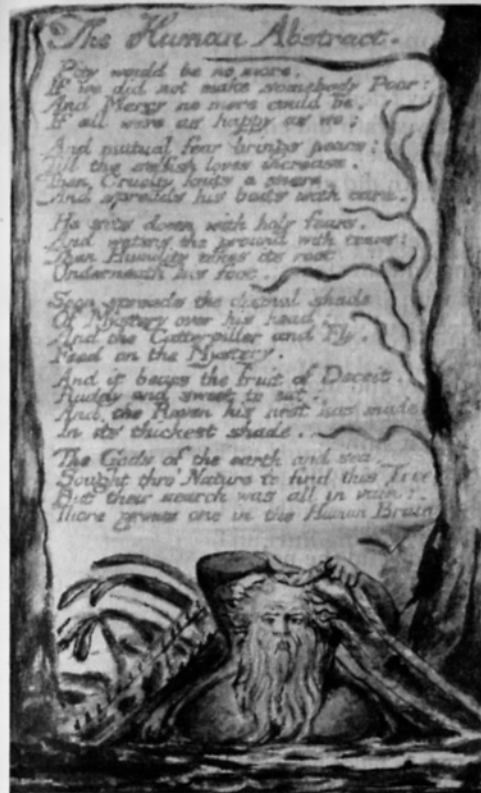 The Human Abstract.
Pity would be no more,
If we did not make somebody Poor:
And Mercy no more could be,
If all were as happy as we:
And mutual fear brings peace:
Till the selfish loves increase.
Then Cruelty knits a snare,
And spreads his baits with care.
He sits down with holy fears,
And waters the ground with tears:
Then Humility takes its root
Underneath his foot.
Soon spreads the dismal shade
Of Mystery over his head:
And the Catterpiller and Fly,
Feed on the Mystery.
And it bears the fruit of Deceit,
Ruddy and sweet to eat:
And the Raven his nest has made
In its thickest shade.
The Gods of the earth and sea,
Sought thro' Nature to find this Tree
But their search was all in vain:
There grows one in the Human Brain